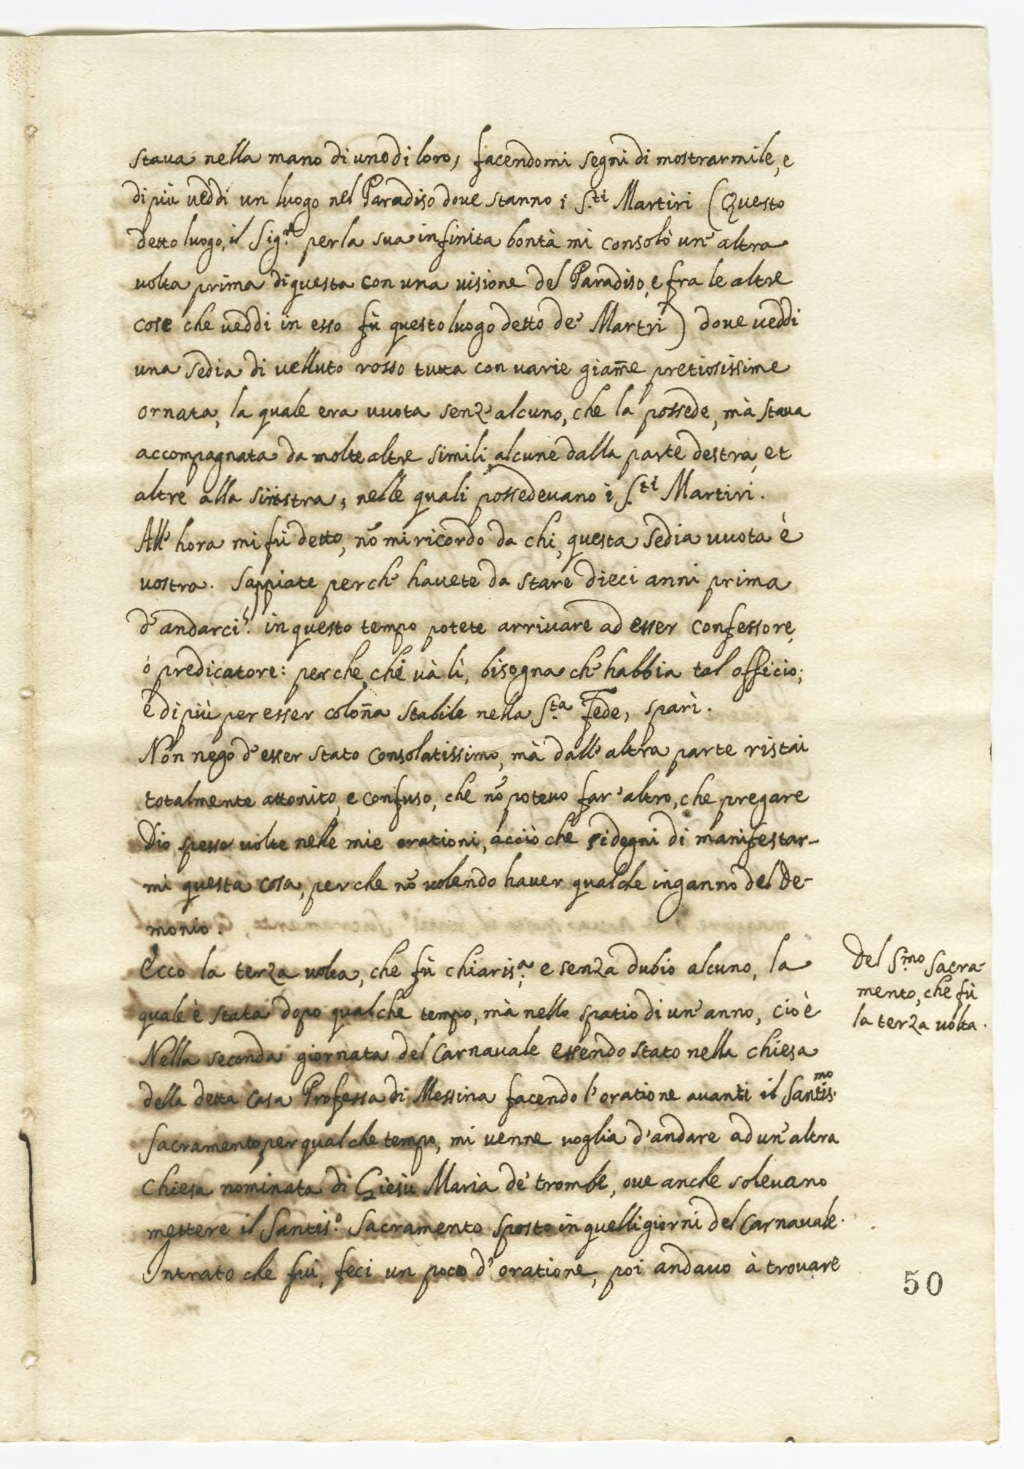 stava nella mano di uno di loro, facendomi segni di mostrarmile, e
di più veddi un luogo nel Paradiso dove stanno i S.ti Martiri (Questo
detto luogo, il Sig.re per la sua infinita bontà mi consolò un'altra
volta prima di questa con una visione del Paradiso, e fra le altre
cose che veddi in esso fù questo luogo detto de' Martri) dove veddi
una sedia di velluto rosso tutta con varie giam̄e pretiosissime
ornata, la quale era vuota senz'alcuno, che la possede, mà stava
accompagnata da molte altre simili, alcune dalla parte destra, et
altre alla sinistra, nelle quali possedevano i S.ti Martiri.
All'hora mi fù detto, nō mi ricordo da chi, questa sedia vuota è
vostra. Sappiate perch' havete da stare dieci anni prima
d'andarci. in questo tempo potete arrivare ad esser confessore,
ò predicatore: perche, chi và lì, bisogna ch'habbia tal officio;
e di più per esser colon̄a stabile nella S.ta Fede, sparì.
Non nego d'esser stato consolatissimo, mà dall'altra parte ristai
totalmente attonito, e confuso, che nō potevo far'altro, che pregare
Dio spesse volte nelle mie orationi, acciò che si degni di manifestar-
mi questa cosa, perche nō volendo haver qualche inganno del De-
monio.
Ecco la terza volta, che fù chiaris.a, e senza dubio alcuno, la
quale è stata dopo qualche tempo, mà nello spatio di un'anno, cioè
Nella seconda giornata del Carnavale essendo stato nella chiesa
della detta Casa Professa di Messina facendo l'oratione avanti il Santis.mo
Sacramento per qualche tempo, mi venne voglia d'andare ad un'altra
Chiesa nominata di Giesù Maria de' trombe, ove anche solevano
mettere il Santis.o Sacramento sposto in quelli giorni del Carnavale.
Intrato che fui, feci un poco d'oratione, poi andavo à trovare
Del S.mo Sacra-
mento, che fù
la terza volta.
50